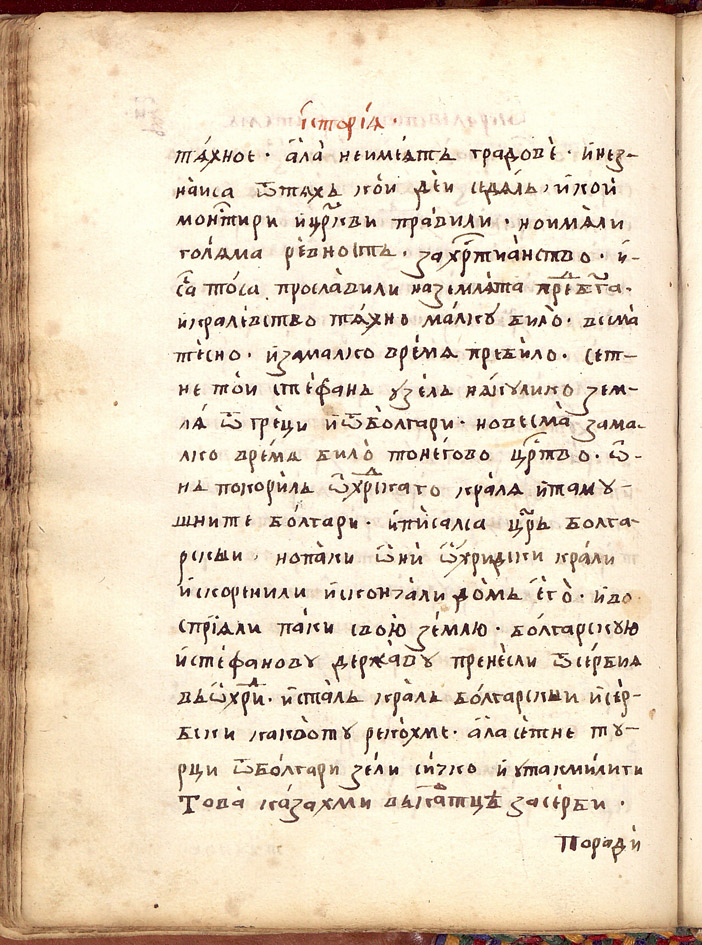 їсторїѧ ·
тѧ́хное · а̀ла̀ неимеѧтъ традовѐ · и҆нез-
наиса ѿтѧхъ кои где́и седѧлъ, и҆кои
мон҇тири и҆цр҃кви правили · ноимѧли
голѧма ре́вность · захр҇тианство · и҆-
са҇ то́са просла́вили наземлѧта
и҆кралевство тѧхно ма́лкѹ било̀ · весма
те́сно · и҆замалко вре́мѧ пребило · сет-
не то́и сте́фанъ узе́лъ нѧ́кулико зем-
лѧ̀ ѿ гре́ци и҆ѿбо́лгари · новесма̀ зама-
лко вре́мѧ било̀ тонегово цр҇тво · ѡ҆-
нъ покорилъ ѡ҆хр҇скаго кралѧ и҆таму-
шните бо́лгари · и҆пи́салсѧ цр҃ъ болга-
рскыи, нопа́ки ѡ҆ни ѡ҆́хридски крали
и҆скоренили и҆скончали до́мъ є҆го̀ · и҆во
спрїѧли паки свою̀ зе́млю · бо́лгарскую
и҆сте́фанову держа́ву пренесли ѿсе́рбиѧ
въѡ҆хрїд · и҆ста́лъ кра́лъ бо́лгарскыи и҆се́р-
бски како́ту реко́хме · а҆ласе́тне ту-
рци ѿбо́лгари зели си́чко и҆утакмилити
Това̀ ка́захми въкра҇тцѣ засе́рби ·
Поради